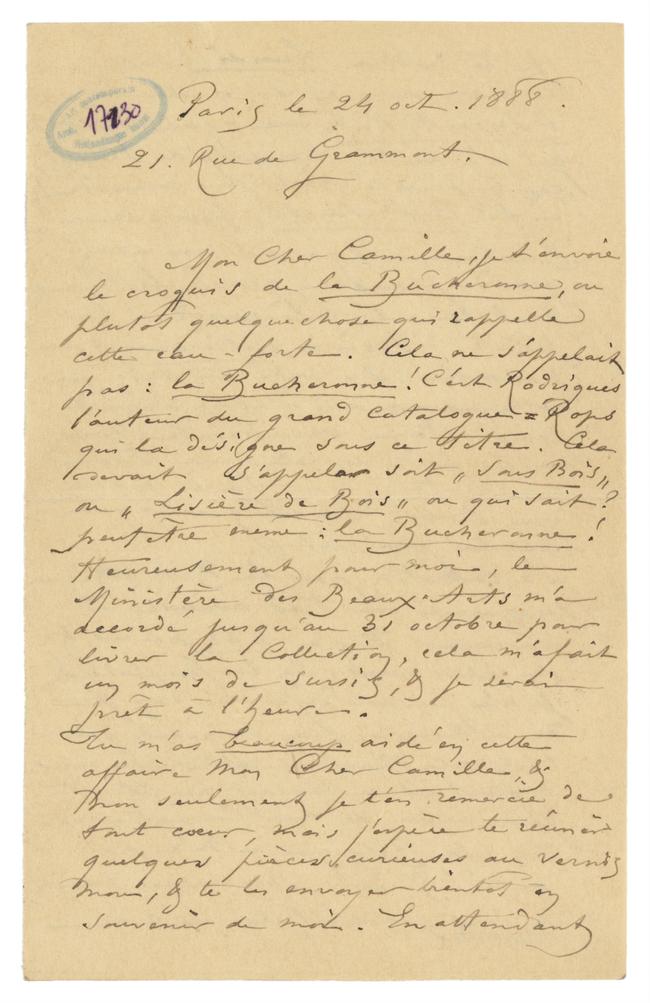 17230
Paris le 24 oct. 1888.
21. Rue de Grammont.
Mon Cher Camille, je t'envoie
le croquis de la Bûcheronne, ou
plutot quelquechose qui rappelle
cette eau-forte. Cela ne s'appelait
pas : la Bucheronne ! C'est Rodrigues
l'auteur du grand catalogue = Rops
qui la désigne sous ce titre. Cela
devait s'appeler soit „ Sous Bois „
ou „ Lisière de Bois „ ou qui sait ?
peutêtre même : la Bucheronne !
Heureusement pour moi, le
Ministère des Beaux-Arts m'a
accordé jusqu'au 31 octobre pour
livrer la Collection, cela m'a fait
un mois de sursis, & je serai
prêt à l'heure.
Tu m'as beaucoup aidé en cette
affaire Mon Cher Camille, &
non seulement je t'en remercie de
tout cœur, mais j'espère te réunir
quelques pièces curieuses au vernis
mou, & te les envoyer bientot en
souvenir de moi. En attendant